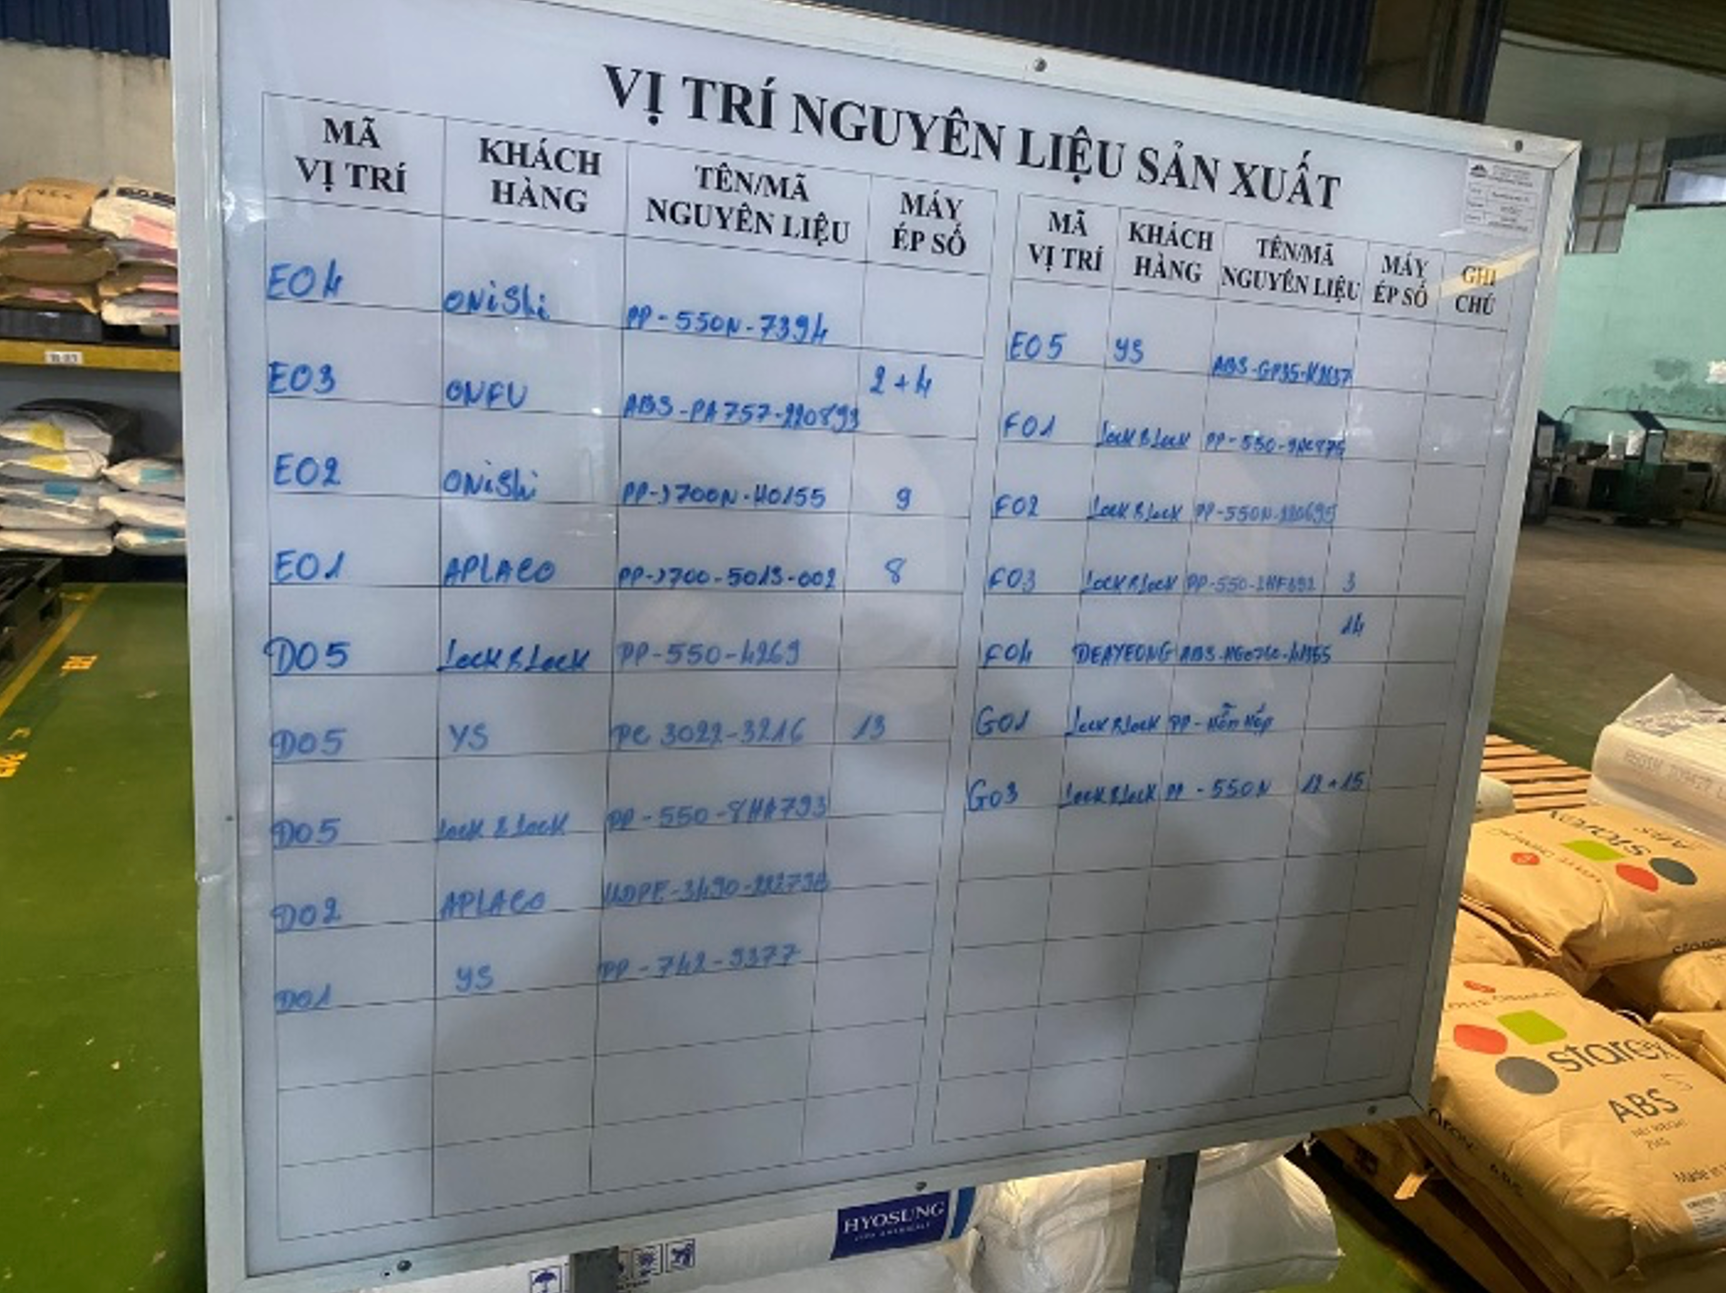 VỊ TRÍ NGUYÊN LIỆU SẢN XUẤT
MÃ VỊ TRÍ KHÁCH HÀNG TÊN/MÃ NGUYÊN LIỆU MÁY ÉP SỐ
E04 ONiShi PP-550N-7394
E03 ONFU ABS-PA757-220893 2+4
E02 ONiShi PP-J700N-H0155 9
E01 APLACO PP-J700-5013-002 8
D05 Lock&Lock PP-550-4269
D05 YS PC 3022-3216 13
D05 Lock&Lock PP-550-9HA793
D02 APLACO
D01 YS PP-742-9377
MÃ VỊ TRÍ KHÁCH HÀNG TÊN/MÃ NGUYÊN LIỆU MÁY ÉP SỐ GHI CHÚ
E05 YS
F01 Lock&Lock
F02 Lock&Lock PP-550N-220695
F03 Lock&Lock 3
F04 DEAYEONG 14
G01 Lock&Lock PP-Hỗn Hợp
G03 Lock&Lock PP-550N 12+15
HYOSUNG
starex
ABS
starex
ABS
Made in